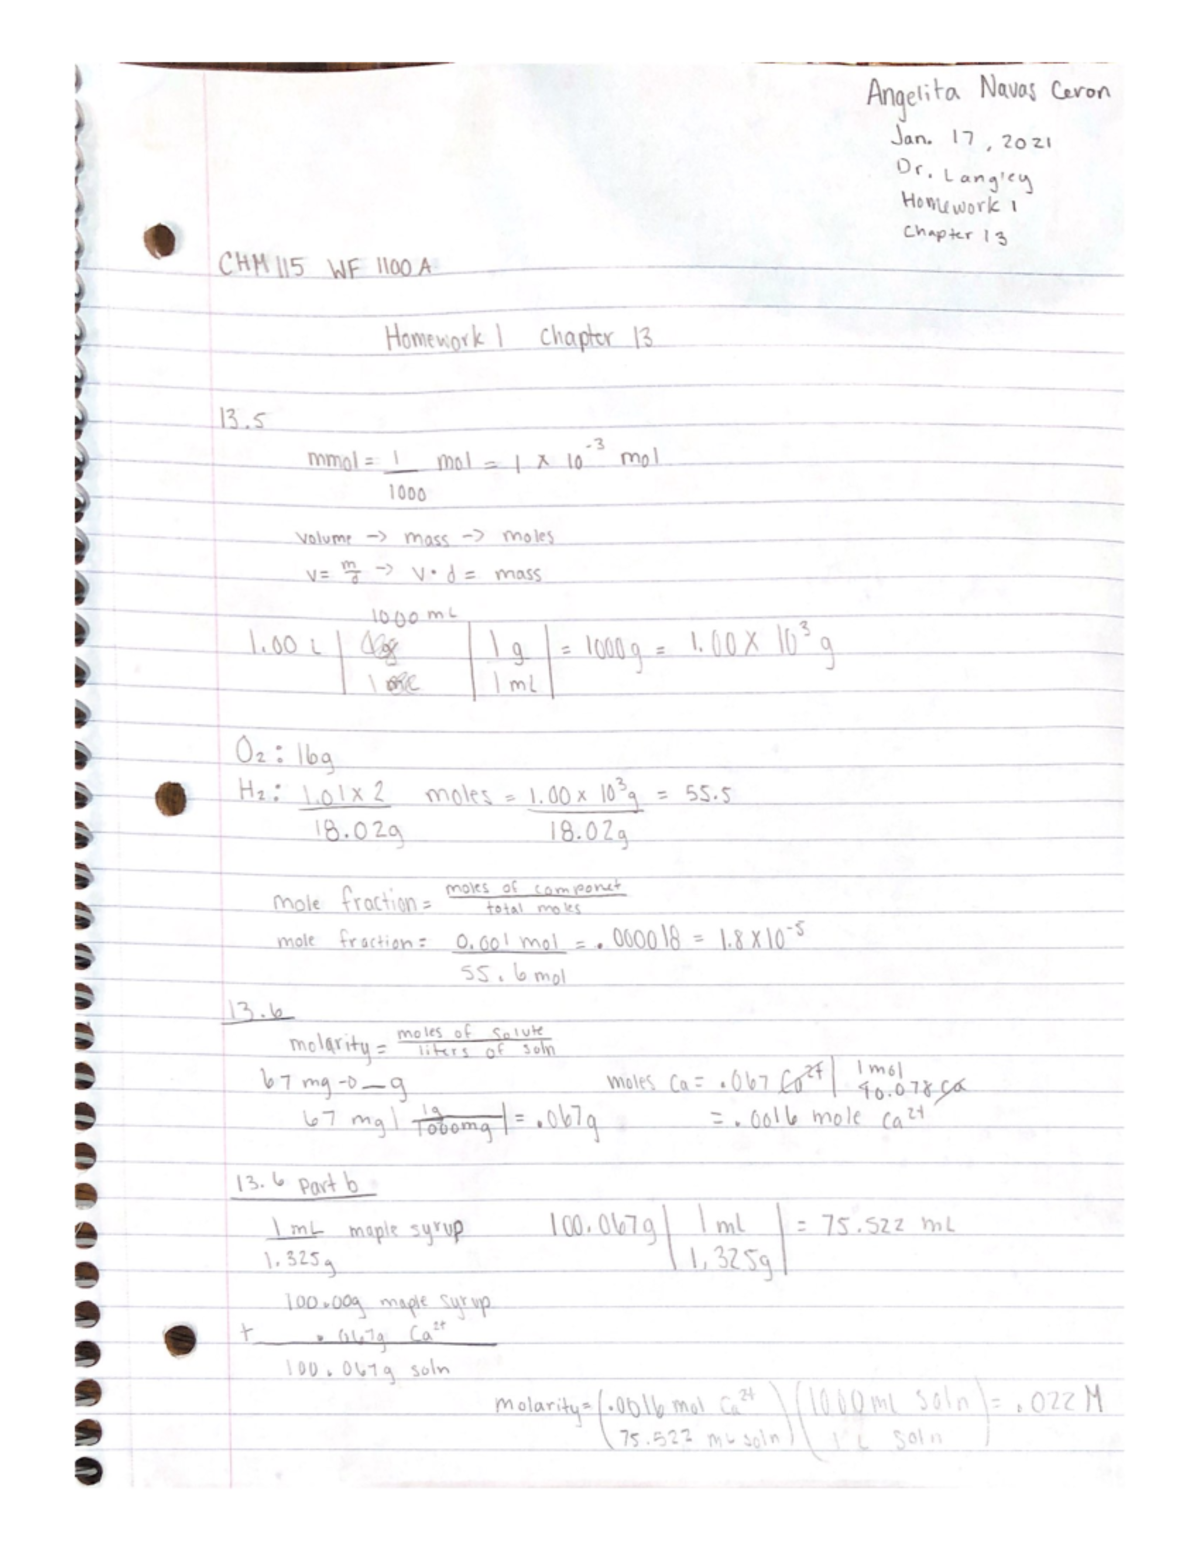 Angelita Navas Ceron
Jan. 17, 2021
Dr. Langley
Homework 1
Chapter 13
CHM 115 WF 1100 A
Homework 1 Chapter 13
13.5
mmol = 1/1000 mol = 1 x 10^-3 mol
volume -> mass -> moles
v = m/d -> v · d = mass
1000 mL
1.00 L | | 1 g | = 1000 g = 1.00 X 10^3 g
1 | 1 mL
O2 : 16g
H2 : 1.01 x 2 moles = 1.00 x 10^3 g = 55.5
18.02g 18.02g
mole fraction = moles of componet / total moles
mole fraction = 0.001 mol = .000018 = 1.8 X 10^-5
55.6 mol
13.6
molarity = moles of solute / liters of soln
67 mg -> _ g moles Ca = .067 Ca2+ | 1 mol / 40.078 Ca
67 mg | 1g / 1000mg | = .067g = .0016 mole Ca2+
13.6 Part b
1 mL maple syrup 100.067g | 1 ml | = 75.522 mL
1.325g | 1.325g |
100.00g maple syrup
+ .067g Ca2+
100.067g soln
molarity = (.0016 mol Ca2+ / 75.522 mL soln) (1000 mL soln / 1 L soln) = .022 M